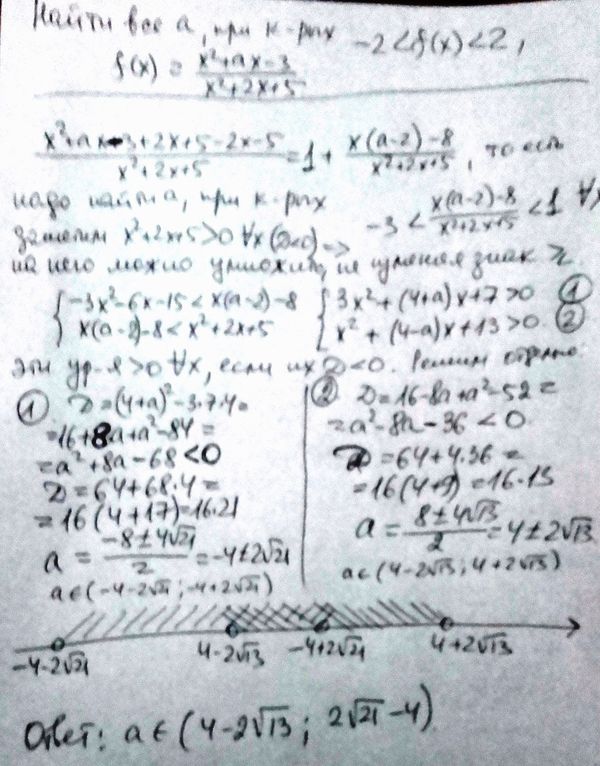 Найти все a, при к-рых -2 < f(x) < 2,
f(x) = (x²+ax-3)/(x²+2x+5)
(x²+ax-3+2x+5-2x-5)/(x²+2x+5) = 1 + (x(a-2)-8)/(x²+2x+5), то есть
надо найти a, при к-рых -3 < (x(a-2)-8)/(x²+2x+5) < 1 ∀x
заметим x²+2x+5>0 ∀x (D<0) =>
на него можно умножить, не изменяя знак ≥.
{ -3x²-6x-15 < x(a-2)-8 { 3x²+(4+a)x+7>0 ①
x(a-2)-8 < x²+2x+5 x²+(4-a)x+13>0 ②
эти ур-я >0 ∀x, если их D<0. Решим отдельно:
① D=(4+a)²-3·7·4=
=16+8a+a²-84=
=a²+8a-68<0
D=64+68·4=
=16(4+17)=16·21
a = (-8±4√21)/2 = -4±2√21
a∈(-4-2√21; -4+2√21)
② D=16-8a+a²-52=
=a²-8a-36<0
D=64+4·36=
=16(4+9)=16·13
a = (8±4√13)/2 = 4±2√13
a∈(4-2√13; 4+2√13)
-4-2√21 4-2√13 -4+2√21 4+2√13
Ответ: a∈(4-2√13; 2√21-4)